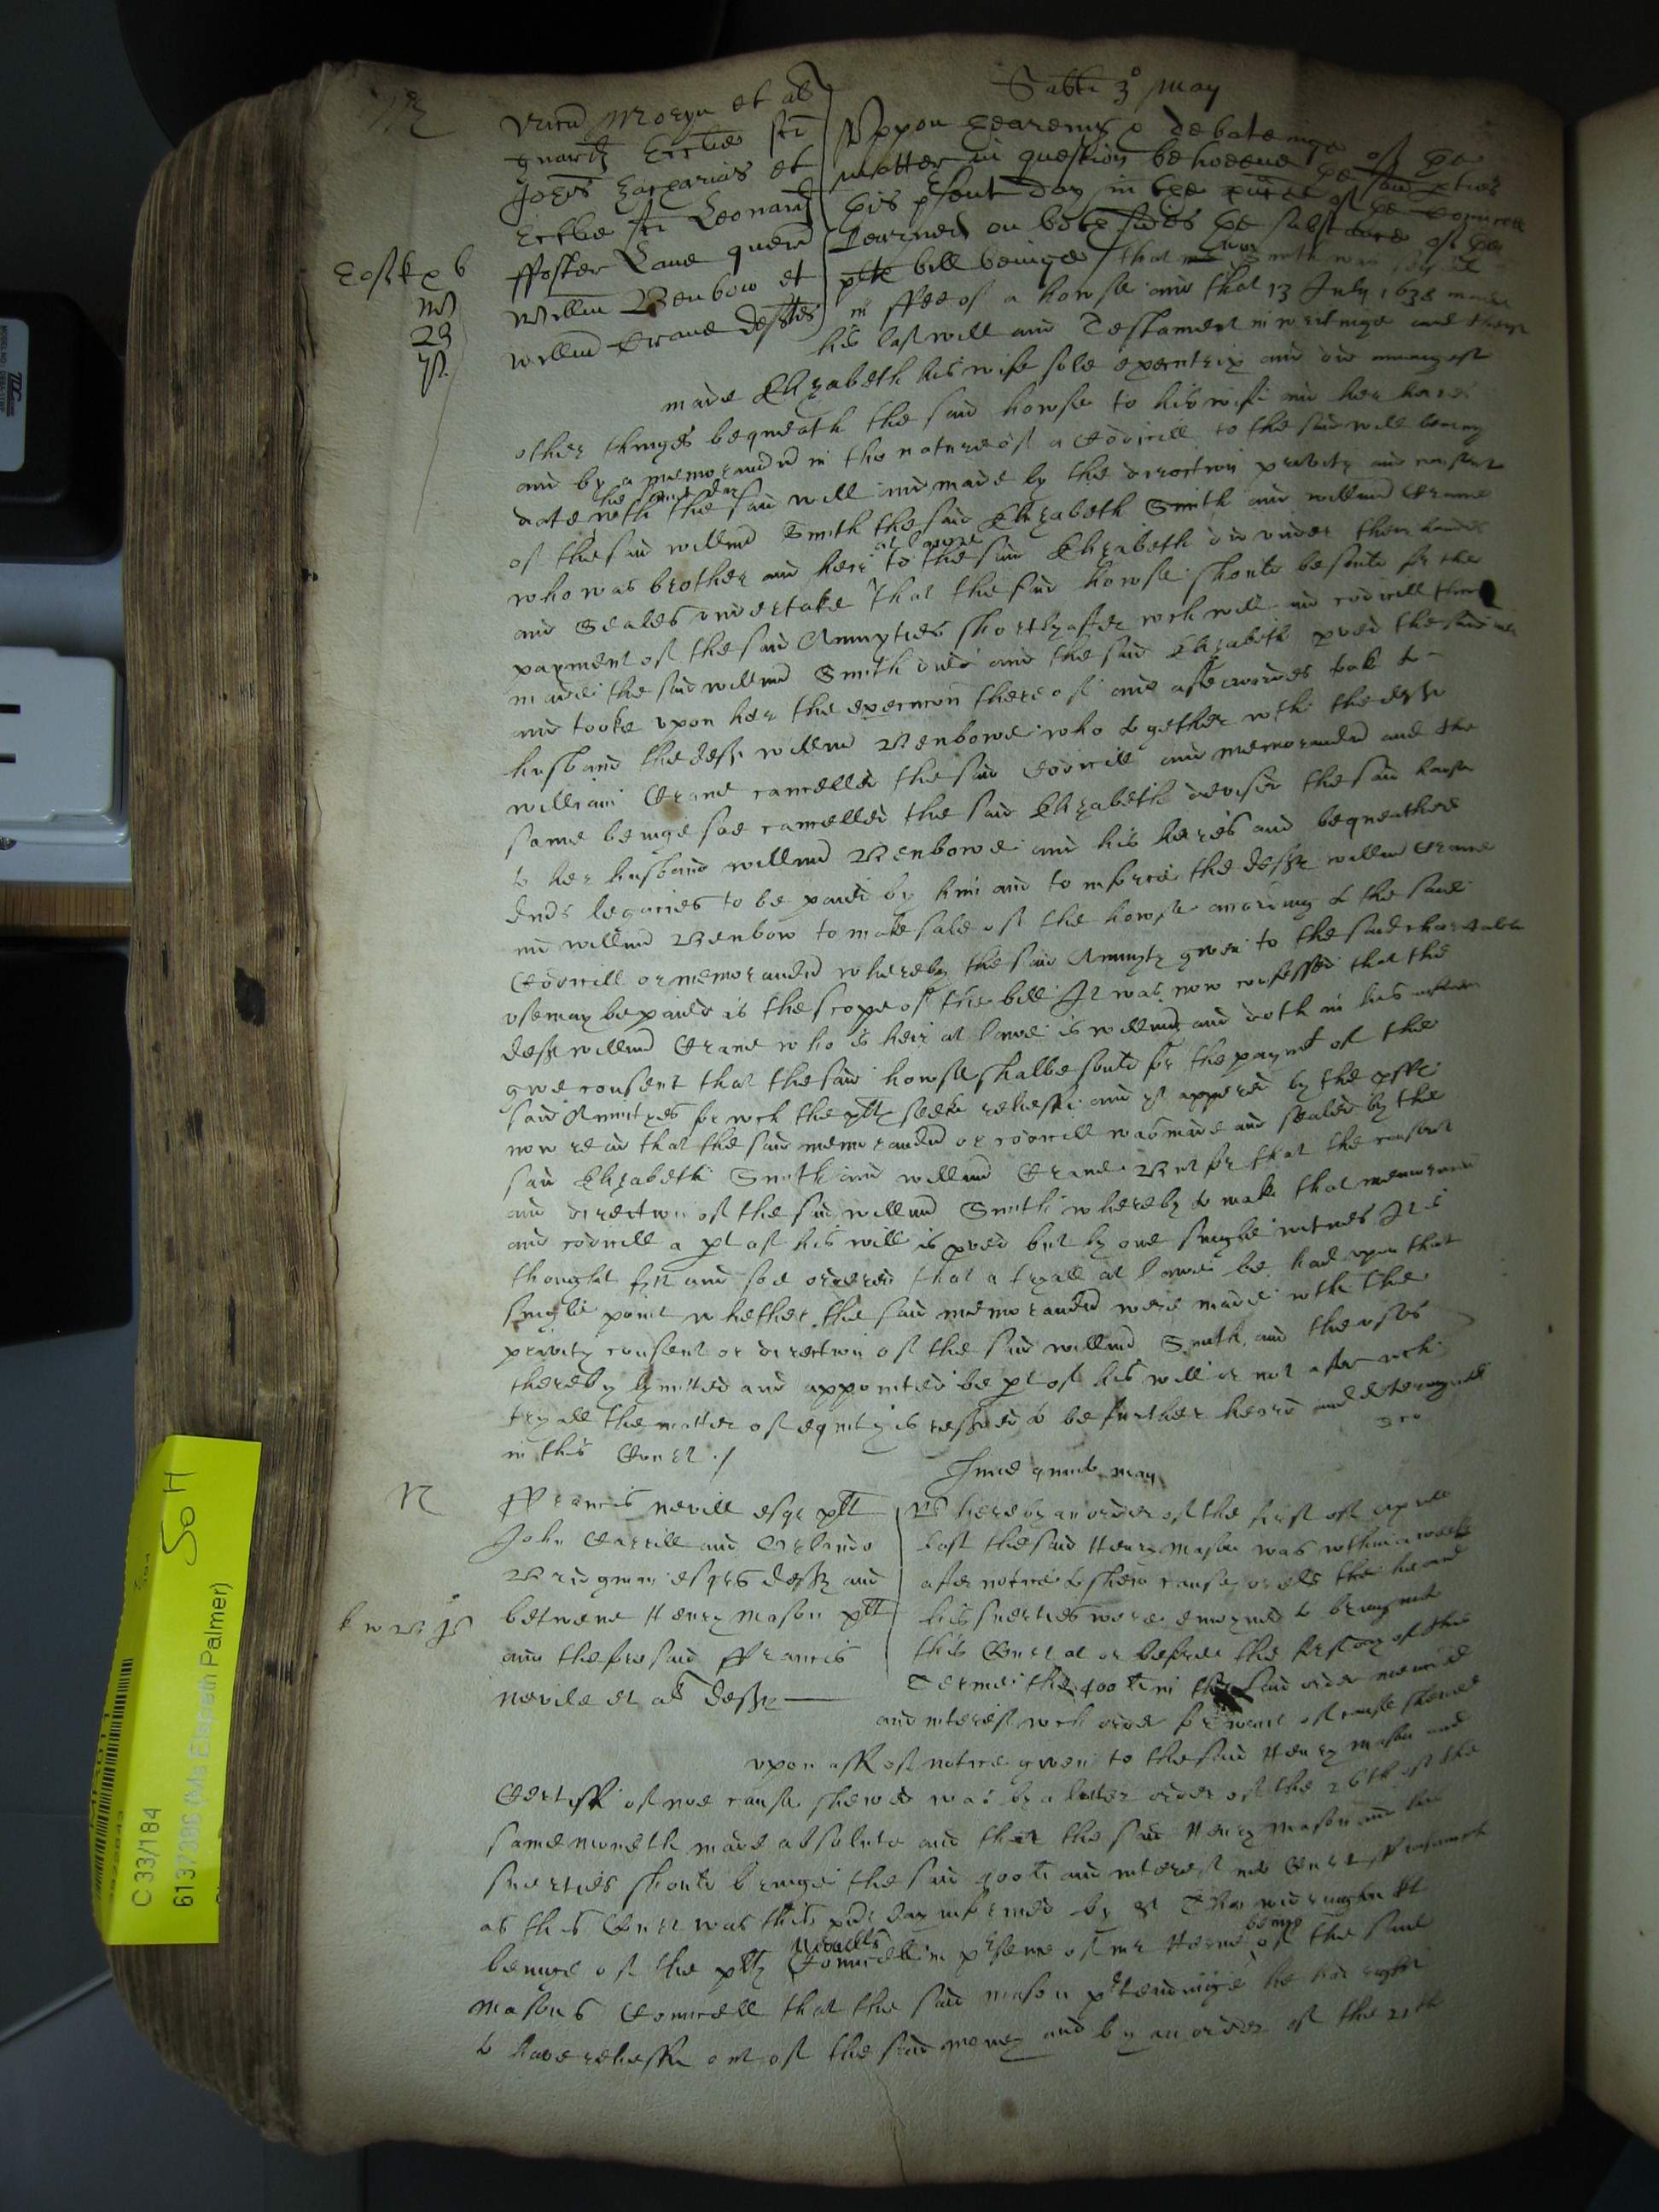 Sabbti 3º May
Gardi Ecclie sci
Johis Zacharias et
Ecclie sci Leonardi
ffoster Lane quer
Willm Benbow et
Willm Crane deftes
Uppon heareing & debateinge of the
matter in question betweene the said pties
this psent day in the of the Councell
Learned on both sides the substance of the
plts bill beinge that one Smith was seised
in ffee of a howse and that 13 July 1638 made
his last will and Testament in writinge and therof
made Elizabeth his wife sole executrix and did amongest
other thinges bequeath the said howse to his wife and her heires
and by a memorandu in the nature of a Codicill to the said will bearing
date with the said will and made by the direction privity and consent
the same day
of the said willmd Smith the said Elizabeth Smith and willmd Crane
who was brother and heir to the said Elizabeth did under their handes
at lawe
and Seales undertake That the said howse should be sould for the
payment of the said Annuyties shortly after wch will and codicill
made the said willmd Smith died and the said Elizabeth pved the said will
and tooke upon her the execucon thereof and afterwardes took to
husband the deft willmd Benbowe who together with the deft
william Crane cancelled the said Codicill and memorandu and the
same beinge soe cancelled the said Elizabeth devised the said howse
to her husband willmd Benbowe and his heires and bequeathed
legacies to be paid by him and to inforce the deft willmd Crane
and willmd Benbow to make sale of the howse according to the said
Codicill or memorandu whereby the said Annuyty given to the said charitable
use may be paied is the scope of the bill It was now confessed that the
deft willmd Crane who is heir at lawe is willing and doth in his answere
give consent that the said howse shalbe sould for the paymt of the
said Annuityes for wch the plts seeke releiffe and yt appered by the
now read that the said memorandu or codicill was made and sealed by the
said Elizabeth Smith and willmd Crane But for that the consent
and direction of the said willmd Smith whereby to make that memorandu
and codicill a pt of his will is pved but by one single witnes It is
thought fitt and soe ordered that a tryall at lawe be had upon that
single point whether the said memorandu were made with the
privity consent or direction of the said willmd Smith and the uses
thereby lymitted and appointed be pt of his will or not after wch
tryall the matter of equity is reserved to be further heard and determyned
in this Court ./
May
ffrancis Nevill esqr plt
John Carrill and Orlando
Bridgman esqrs defts and
betwene Henry Mason plt
and the foresaid ffrancis
Nevile et al defts
Whereby an order of the first of Aprill
last the said Henry Mason was within a weeke
after notice to shew cause or els the he and
his suerties were enioyned to bring into
this Court at or before the first day of this
Terme the 400li in the said order mencoed
and interest wch order for want of cause shewed
upon aff of notice given to the said Henry Mason and
Certiff of noe cause shewed was by a latter order of the 26th of the
same moneth made absolute and that the said Henry Mason and his
suerties should bringe the said 400li and interest into Court
as this Court was this pnt day informed by
beinge of the plts Councell in psence of mr Herne of the said
Nevills
being
Masons Councell that the said Mason ptendinge he had right
to have releiffe out of the said money and by an order of the 21th
C 33/184
(Ms Elspeth Palmer)